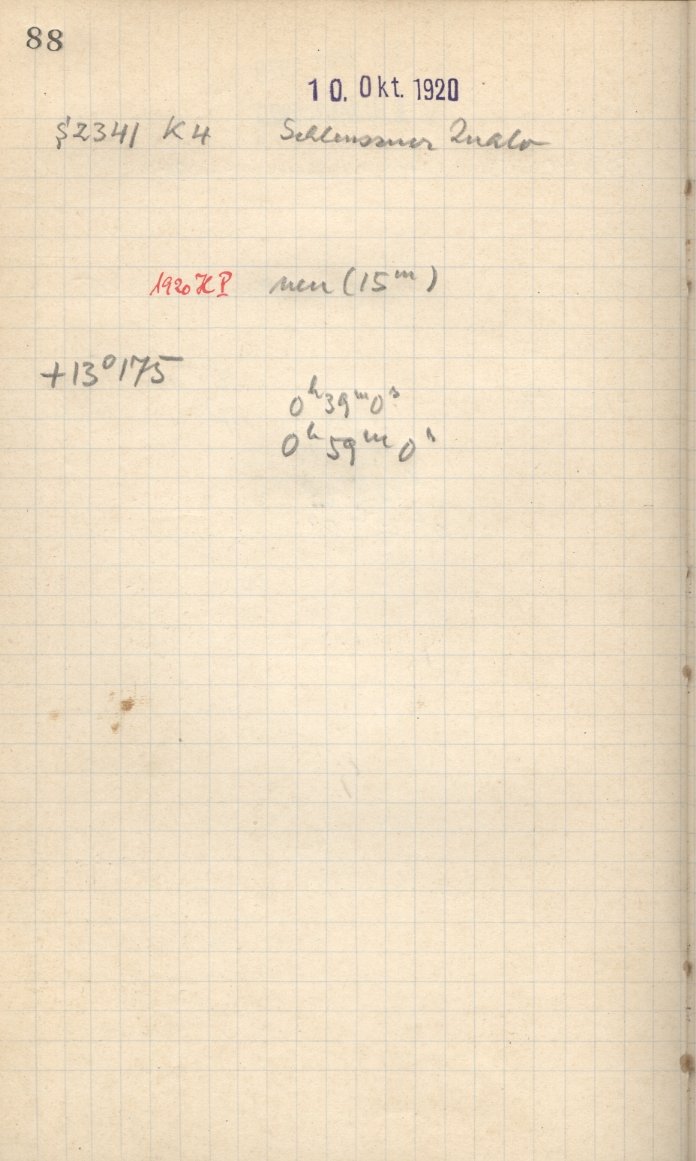 88
10. Okt. 1920
§2341 K4 Schleussner Inalo
1920 HI neu (15ᵐ)
+13°175
0ʰ39ᵐ0ˢ
0ʰ59ᵐ0ˢ